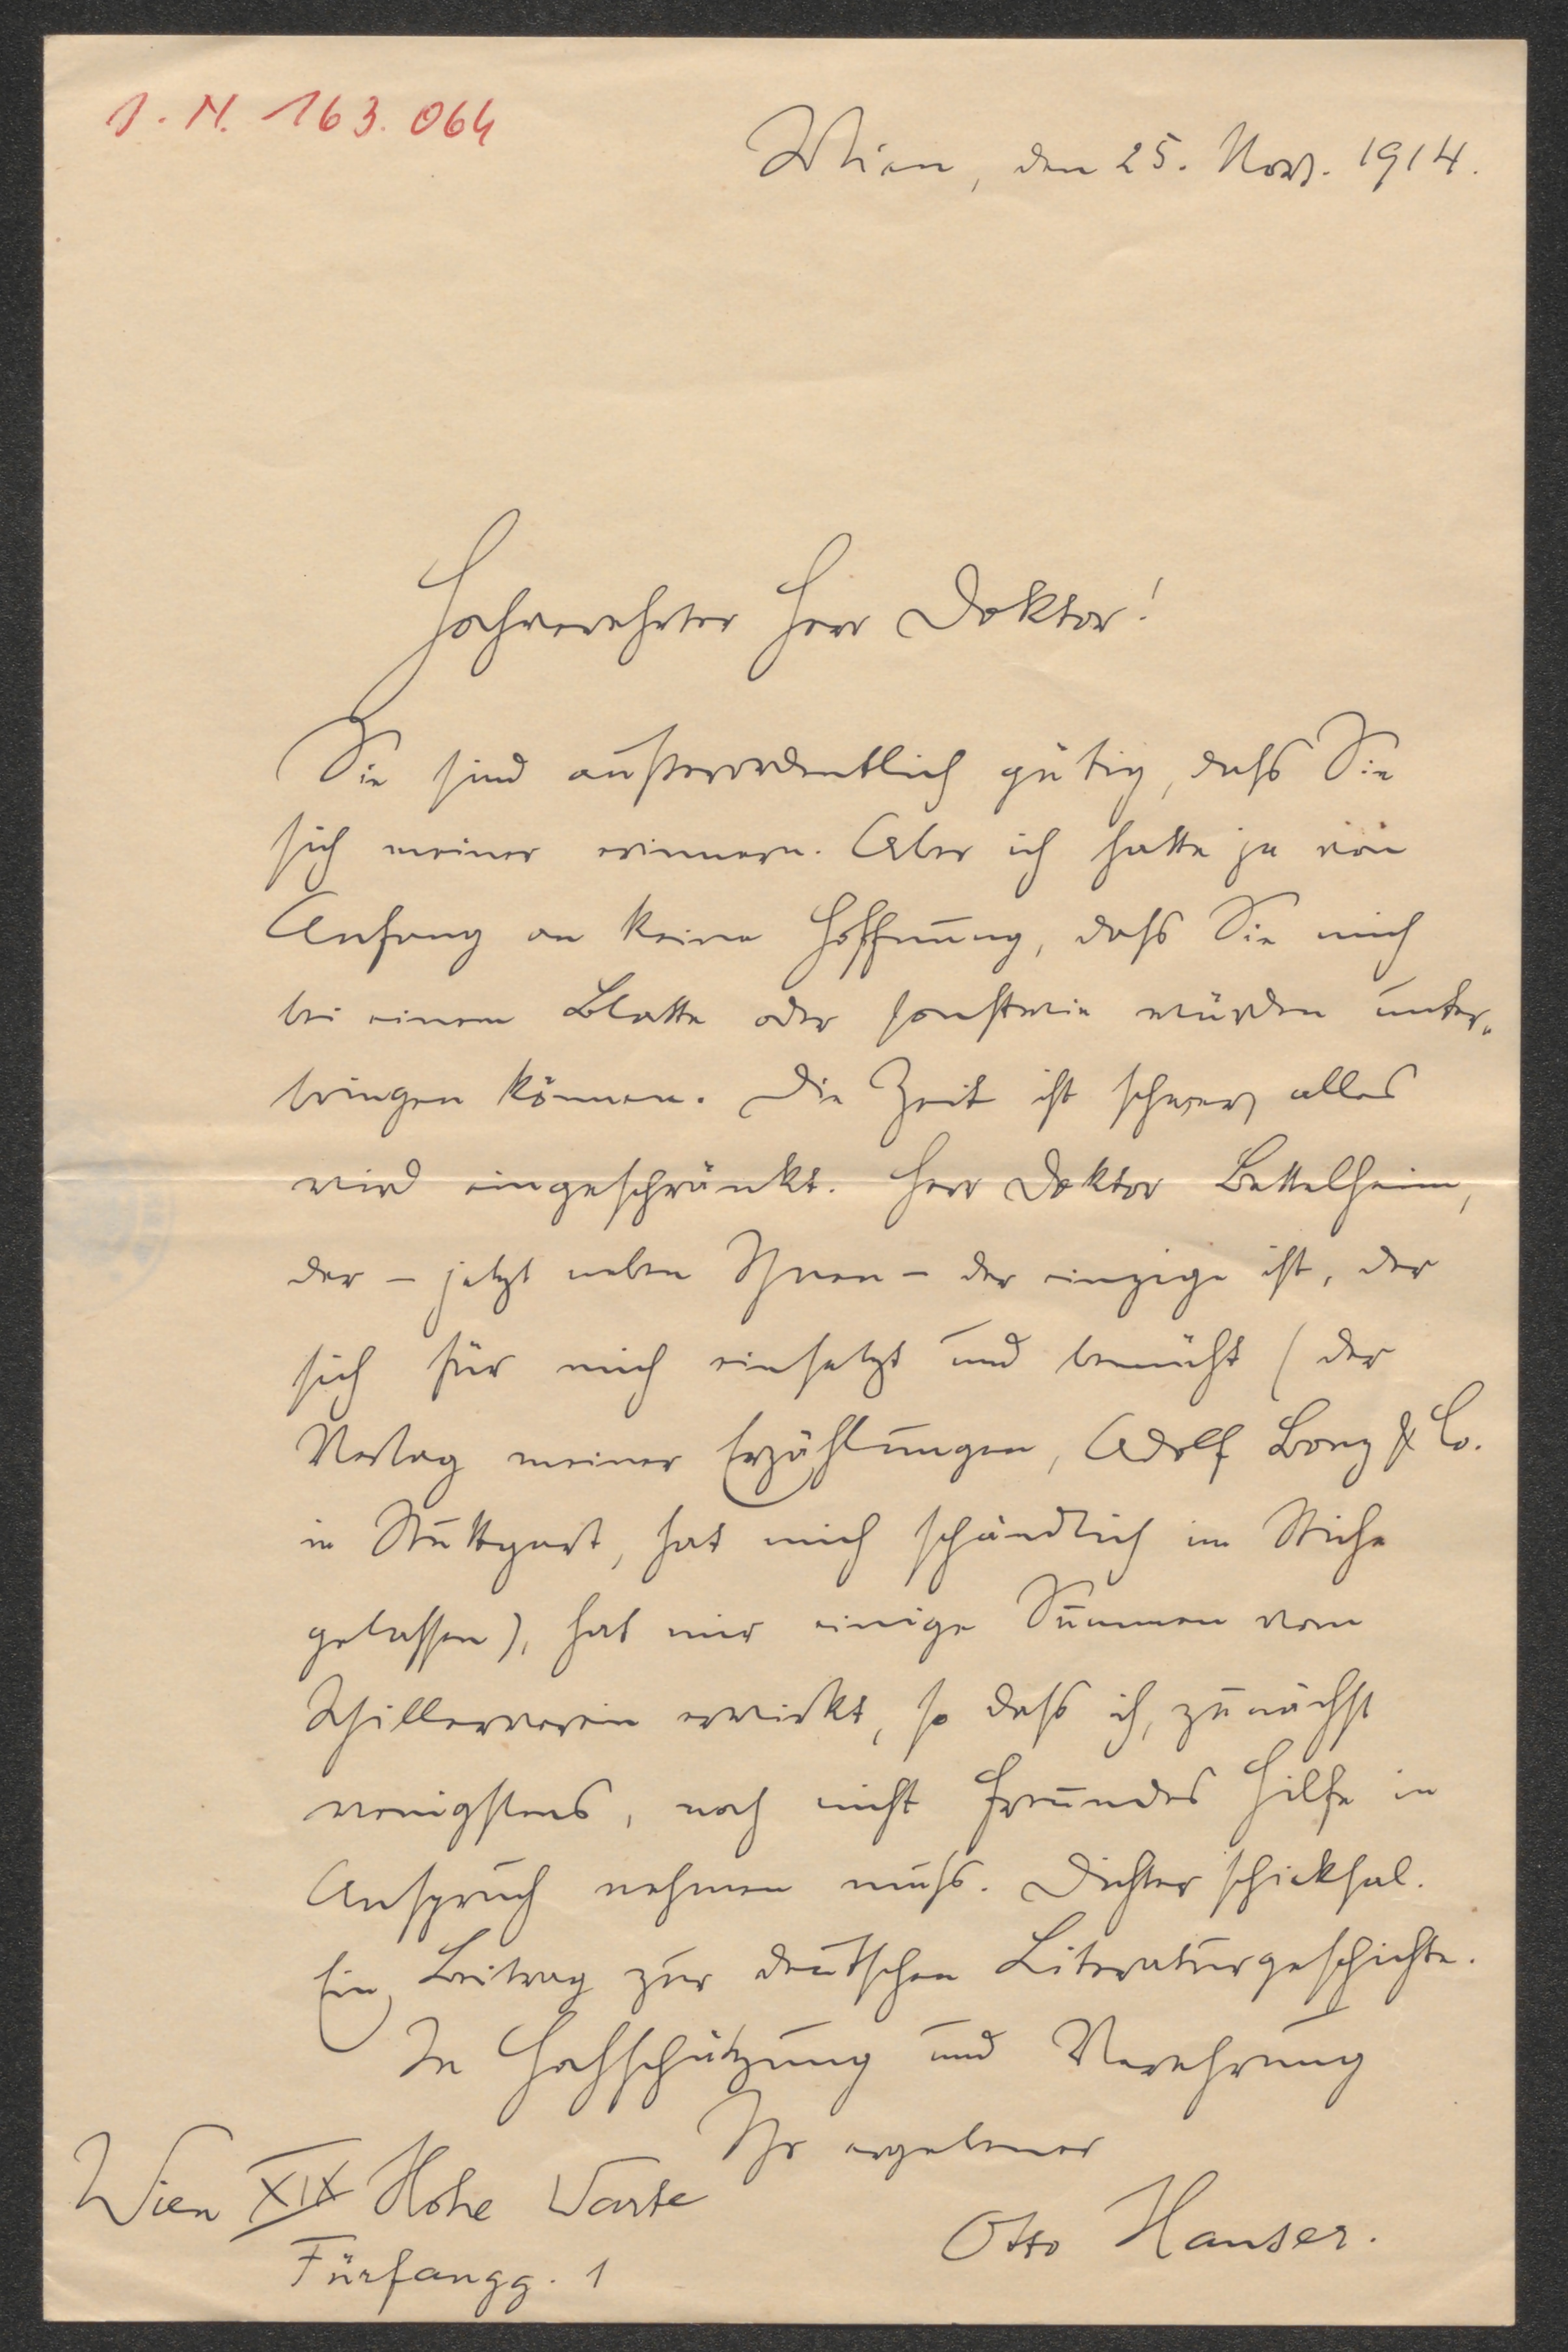 J. N. 163.064
Wien, den 25. Nov. 1914.
Hochverehrter Herr Doktor!
Sie sind außerordentlich gütig, dass Sie
sich meiner erinnern. Aber ich hatte ja von
Anfang an keine Hoffnung, dass Sie mich
bei einem Blatte oder sonstwie würden unter-
bringen können. Die Zeit ist schwer, alles
wird eingeschränkt. Herr Doktor Bettelheim,
der – jetzt neben Ihnen – der einzige ist, der
sich für mich einsetzt und bemüht (der
Verlag meiner Erzählungen, Adolf Bonz & Co.
in Stuttgart, hat mich schändlich im Stiche
gelassen), hat mir einige Summen vom
Schillerverein erwirkt, so dass ich, zunächst
wenigstens, noch nicht Freundes Hilfe in
Anspruch nehmen muss. Dichterschicksal.
Ein Beitrag zur deutschen Literaturgeschichte.
In Hochschätzung und Verehrung
Ihr ergebener
Otto Hauser.
Wien XIX Hohe Warte
Fürfangg. 1